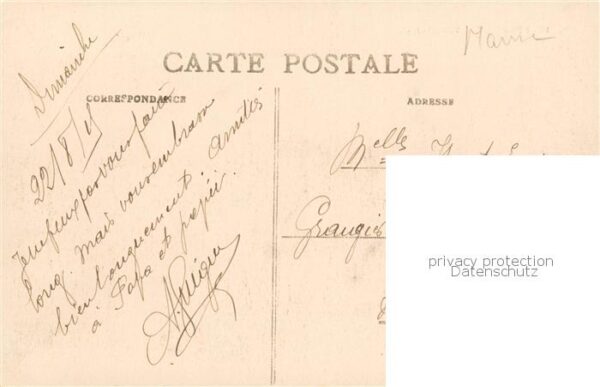 Mairie
CARTE POSTALE
CORRESPONDANCE
ADRESSE
Dimanche
22/8/15
Je ne peux pas vous faire
long. mais vous embrasse
bien longuement. Amitiés
à Papa et
Melle
Granges
privacy protection
Datenschutz